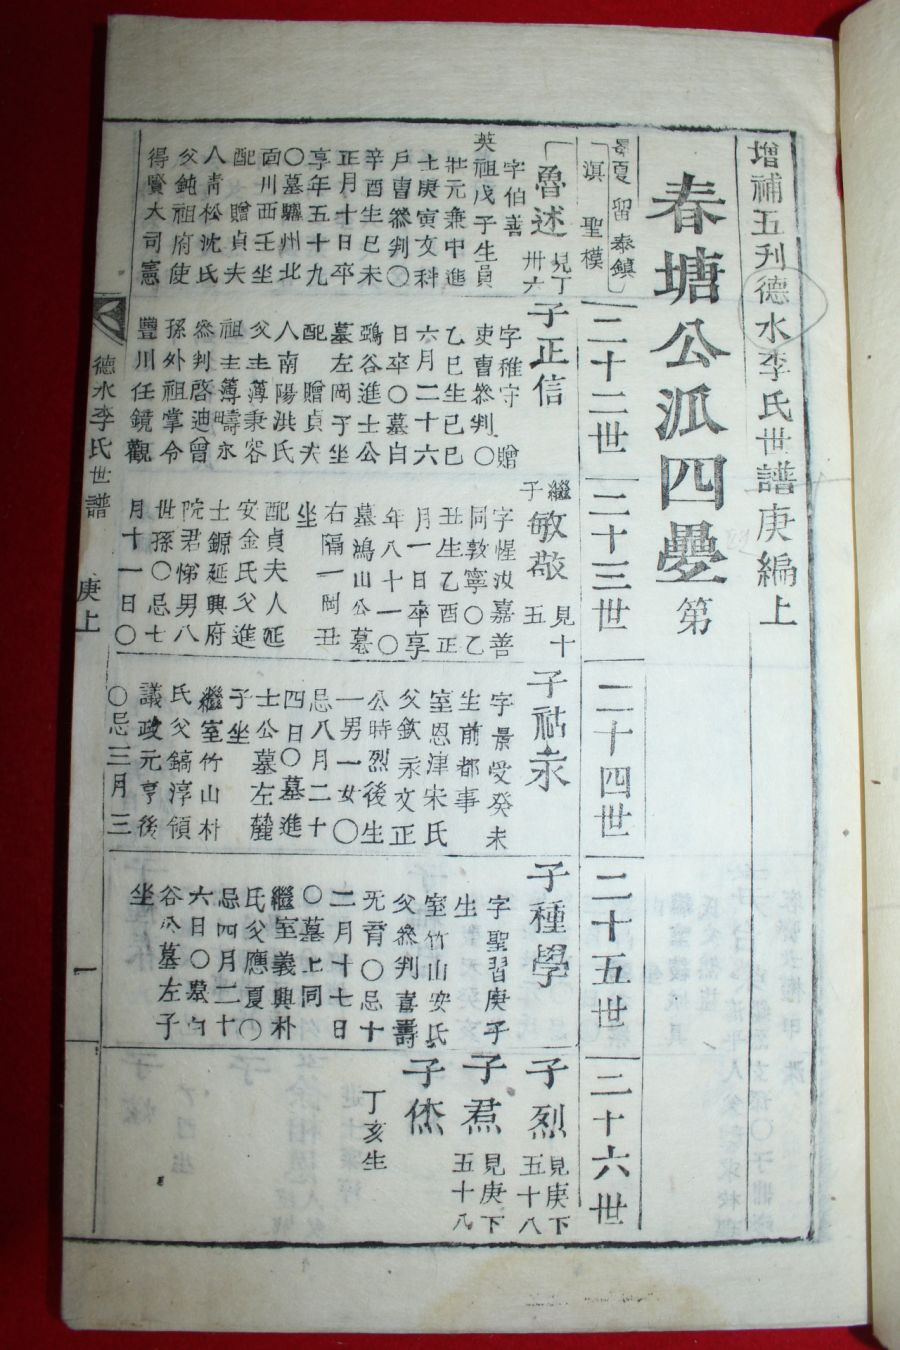 增補五刋德水李氏世譜庚編上
春塘公派四疊第
景夏 留 泰鎭
滨 聖模
二十二世
二十三世
二十四世
二十五世
二十六世
魯述 見丁
卅六
字伯善
英祖戊子生員
壯元兼中進
士庚寅文科
戶曺叅判〇
辛酉生己未
正月十日卒
享年五十九
〇墓驪州北
面川西壬坐
配贈貞夫
人靑松沈氏
父鈍祖府使
得賢大司憲
子正信
字稚守 贈
吏曺叅判〇
乙巳生己巳
六月二十六
日卒〇墓白
鵶谷進士公
墓左岡子坐
配 贈貞夫
人南陽洪氏
父主薄秉容
祖主薄疇永
叅判啓迪曾
孫外祖掌令
豐川任鏡觀
繼
子敏敬 見十
五
字惺汝嘉善
同敦寧〇乙
丑生乙酉正
月一日卒享
年八十一〇
墓鴻山公墓
右隔一岡丑
坐
配貞夫人延
安金氏父進
士鎯延興府
院君悌男八
世孫〇忌七
月十一日〇
子祜永
字景受癸未
生前都事
室恩津宋氏
父欽永文正
公時烈後生
一男一女〇
忌八月二十
四日〇墓進
士公墓左麓
子坐
繼室竹山朴
氏父鎬淳領
議政元亨後
〇忌三月三
子種學
字聖習庚子
生
室竹山安氏
父叅判喜壽
无育〇忌十
二月十七日
〇墓上同
繼室義興朴
氏父應夏〇
忌四月二十
六日〇墓白
谷公墓左子
坐
子烈 見庚下
五十八
子焄 見庚下
五十八
子烋
丁亥生
德水李氏世譜 庚上 一